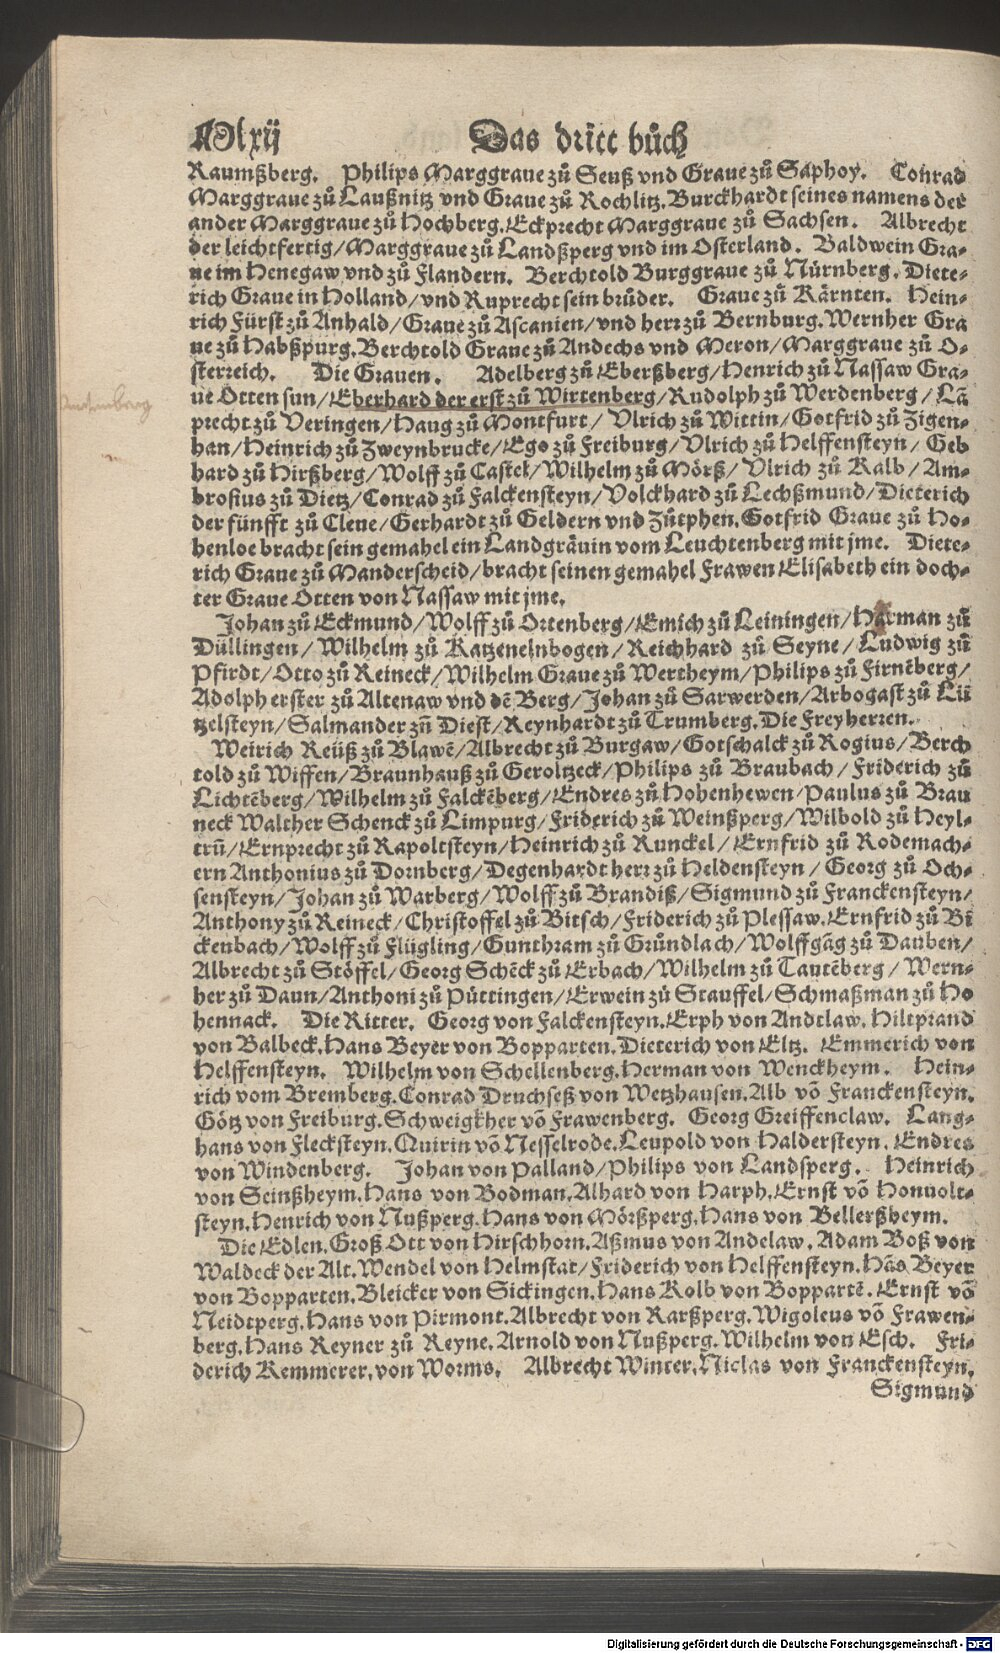 Mlxij Das dritt bůch
Raumßberg. Philips Marggraue zů Seuß vnd Graue zů Saphoy. Conrad
Marggraue zů Laußnitz vnd Graue zů Rochlitz. Burckhardt seines namens der
ander Marggraue zů Hochberg. Eckprecht Marggraue zů Sachsen. Albrecht
der leichtfertig/ Marggraue zů Landßperg vnd im Osterland. Baldwein Gra-
ue im Henegaw vnd zů Flandern. Berchtold Burggraue zů Nürnberg. Diete-
rich Graue in Holland/ vnd Ruprecht sein brůder. Graue zů Kärnten. Hein-
rich Fürst zů Anhald/ Graue zů Ascanien/ vnd herr zů Bernburg. Wernher Gra
ue zů Habßpurg. Berchtold Graue zů Andechs vnd Meron/ Marggraue zů O-
sterreich. Die Grauen. Adelberg zů Eberßberg/ Henrich zů Nassaw Gra-
ue Otten sun/ Eberhard der erst zů Wirtenberg/ Rudolph zů Werdenberg/ Lã
precht zů Veringen/ Haug zů Montfurt/ Vlrich zů Wittin/ Gotfrid zů Zigen-
han/ Heinrich zů Zweynbrucke/ Ego zů Freiburg/ Vlrich zů Helffensteyn/ Geb
hard zů Hirßberg/ Wolff zů Castel/ Wilhelm zů Mörß/ Vlrich zů Kalb/ Am-
brosius zů Dietz/ Conrad zů Falckensteyn/ Volckhard zů Lechßmund/ Dieterich
der fünfft zů Cleue/ Gerhardt zů Geldern vnd Zütphen. Gotfrid Graue zů Ho-
henloe bracht sein gemahel ein Landgräuin vom Leuchtenberg mit jme. Diete-
rich Graue zů Manderscheid/ bracht seinen gemahel Frawen Elisabeth ein doch-
ter Graue Otten von Nassaw mit jme.
Johan zů Eckmund/ Wolff zů Ortenberg/ Emich zů Leiningen/ Harman zů
Düllingen/ Wilhelm zů Katzenelnbogen/ Reichhard zů Seyne/ Ludwig zů
Pfirdt/ Otto zů Reineck/ Wilhelm Graue zů Wertheym/ Philips zů Firnẽberg/
Adolph erster zů Altenaw vnd dẽ Berg/ Johan zů Sarwerden/ Arbogast zů Lü
tzelsteyn/ Salmander zů Diest/ Reynhardt zů Trumberg. Die Freyherren.
Weirich Reüß zů Blawẽ/ Albrecht zů Burgaw/ Gotschalck zů Rogius/ Berch
told zů Wiffen/ Braunhauß zů Geroltzeck/ Philips zů Braubach/ Friderich zů
Lichtẽberg/ Wilhelm zů Falckẽberg/ Endres zů Hohenhewen/ Paulus zů Brau
neck Walther Schenck zů Limpurg/ Friderich zů Weinßperg/ Wilbold zů Heyl-
trũ/ Ernprecht zů Rapoltsteyn/ Heinrich zů Runckel/ Ernfrid zů Rodemach-
ern Anthonius zů Dornberg/ Degenhardt herr zů Heldensteyn/ Georg zů Och-
sensteyn/ Johan zů Warberg/ Wolff zů Brandiß/ Sigmund zů Franckensteyn/
Anthony zů Reineck/ Christoffel zů Bitsch/ Friderich zů Plessaw. Ernfrid zů Bĩ
ckenbach/ Wolff zů Flügling/ Gunthram zů Gründlach/ Wolffgãg zů Dauben/
Albrecht zů Stöffel/ Georg Schẽck zů Erbach/ Wilhelm zů Tautẽberg/ Wern-
her zů Daun/ Anthoni zů Püttingen/ Erwein zů Stauffel/ Schmaßman zů Ho
hennack. Die Ritter. Georg von Falckensteyn. Erph von Andtlaw. Hiltprand
von Balbeck. Hans Beyer von Bopparten. Dieterich von Eltz. Emmerich von
Helffensteyn. Wilhelm von Schellenberg. Herman von Wenckheym. Hein-
rich vom Bremberg. Conrad Druchseß von Wetzhausen. Alb võ Franckensteyn.
Götz von Freiburg. Schweigkher võ Frawenberg. Georg Greiffenclaw. Lang-
hans von Flecksteyn. Quirin võ Nesselrode. Leupold von Haldersteyn. Endres
von Windenberg. Johan von Palland/ Philips von Landsperg. Heinrich
von Seinßheym. Hans von Bodman. Alhard von Harph. Ernst võ Honuolt-
steyn. Henrich von Nußperg. Hans von Mörßperg. Hans von Bellerßheym.
Die Edlen. Groß Ott von Hirschhorn. Aßmus von Andelaw. Adam Boß von
Waldeck der Alt. Wendel von Helmstat/ Friderich von Helffensteyn. Hãs Beyer
von Bopparten. Bleicker von Sickingen. Hans Kolb von Boppartẽ. Ernst võ
Neidtperg. Hans von Pirmont. Albrecht von Rarßperg. Wigoleus võ Frawen-
berg. Hans Reyner zů Reyne. Arnold von Nußperg. Wilhelm von Esch. Fri-
derich Kemmerer. von Worms. Albrecht Winter. Niclas von Franckensteyn.
Sigmund
Digitalisierung gefördert durch die Deutsche Forschungsgemeinschaft - DFG